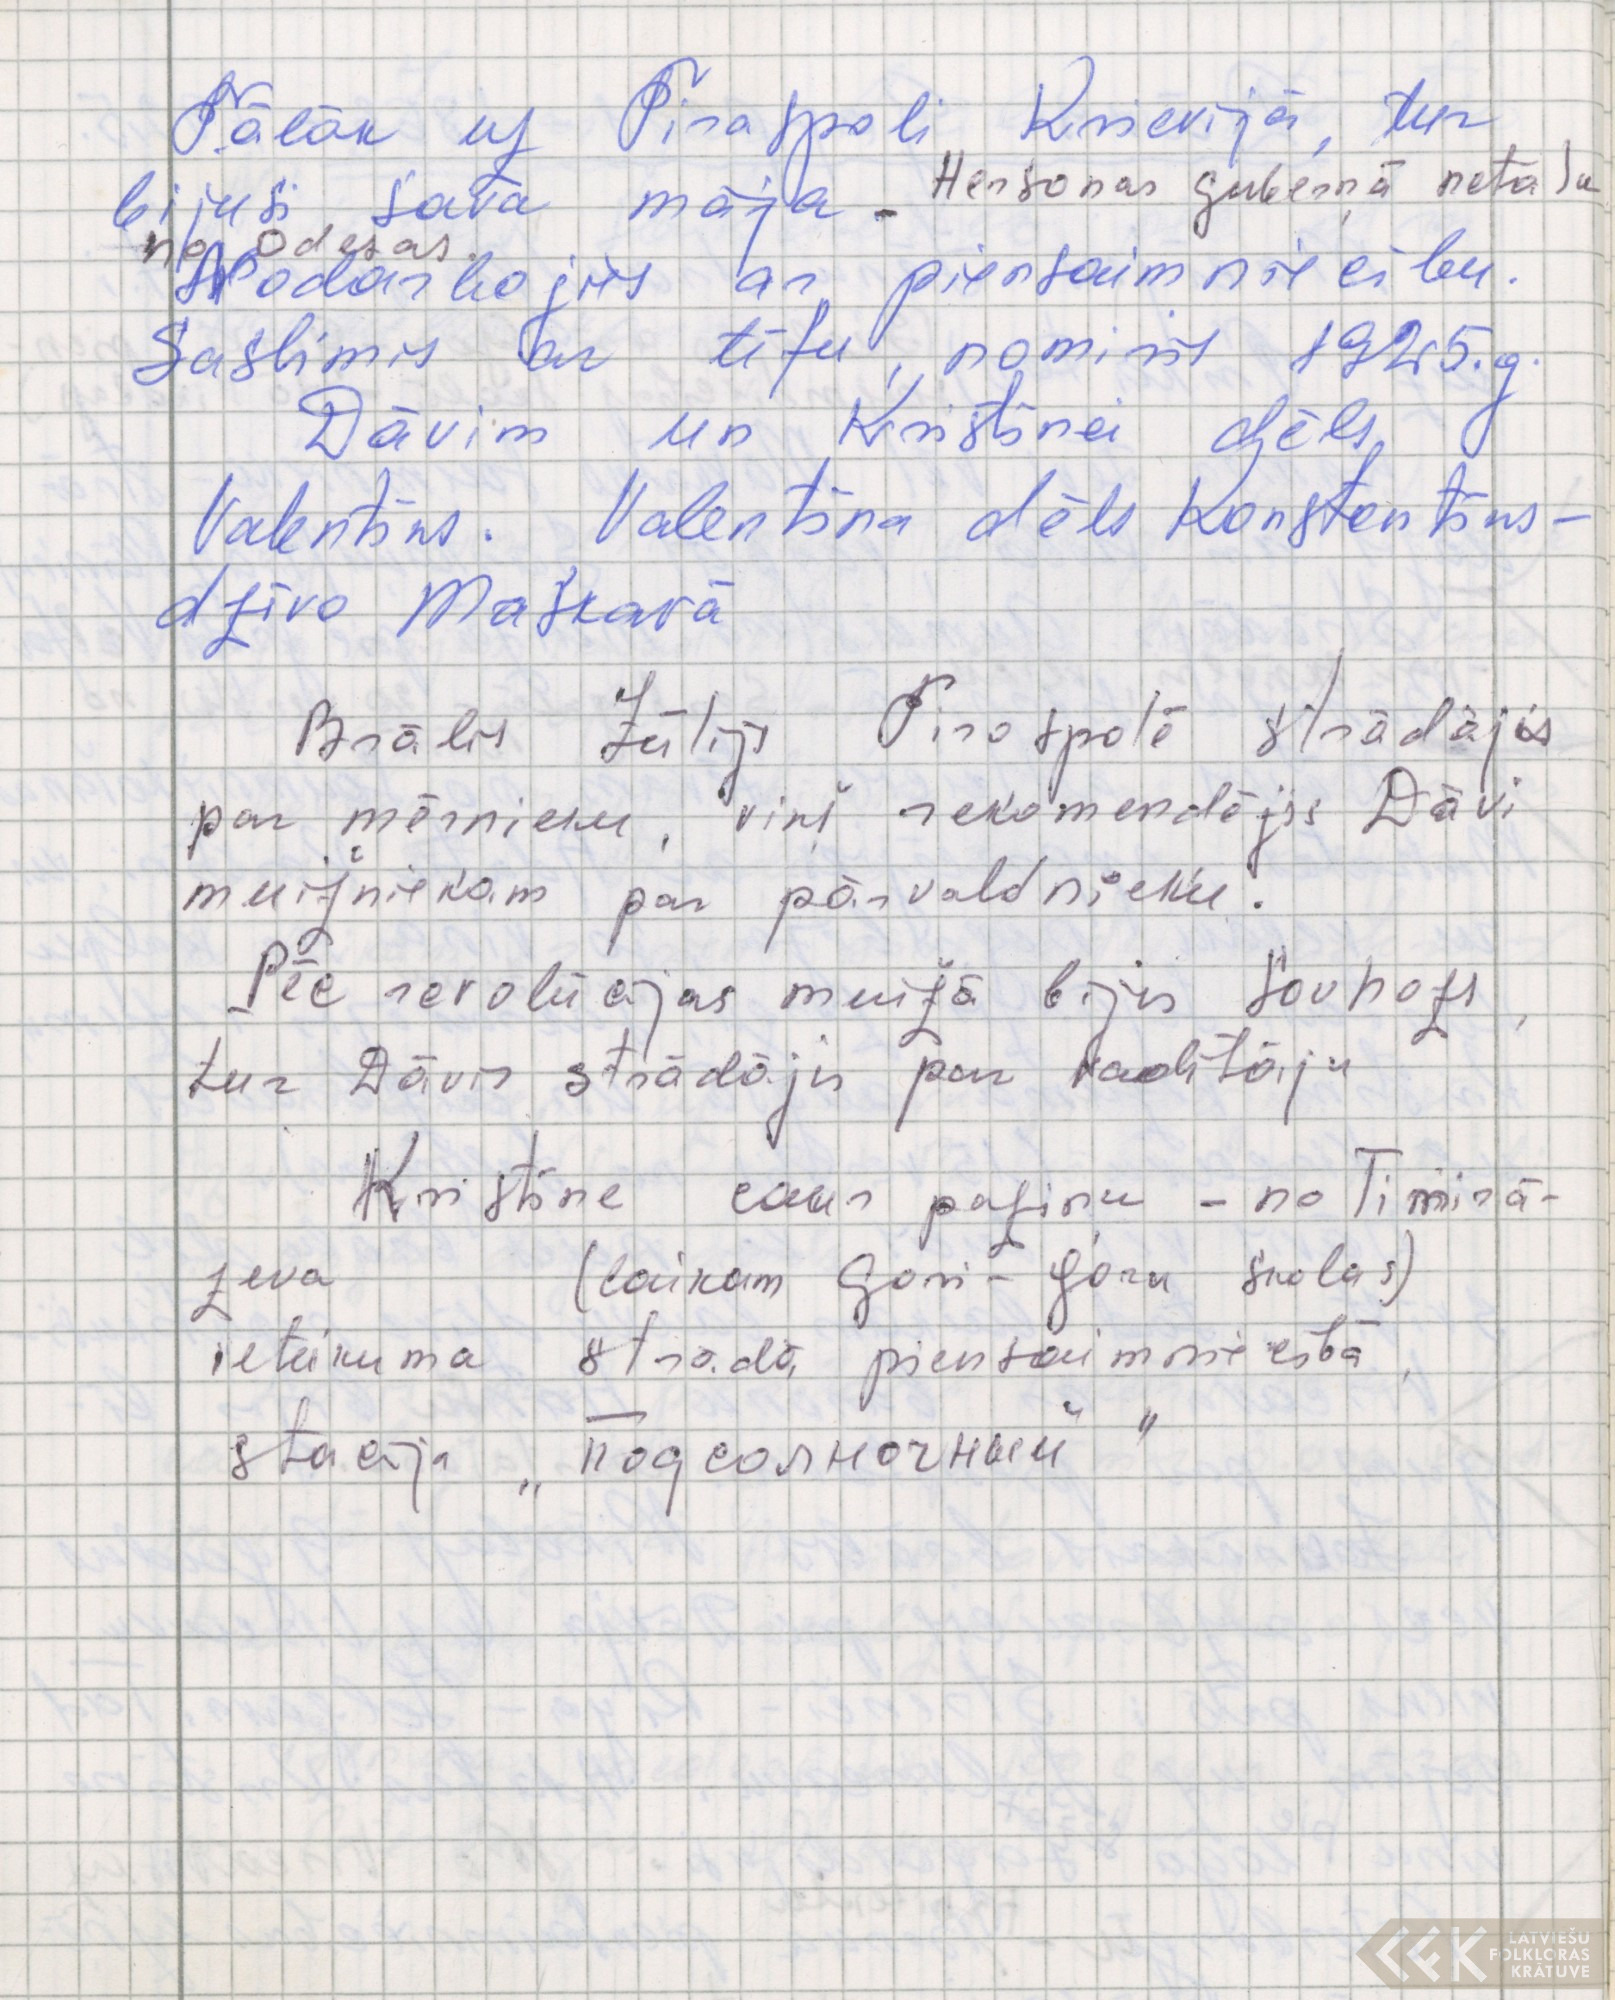 Tālāk uz Tiraspoli Krievijā, tur
bijusi sava māja - Hersonas guberņā netālu
no Odesas.
Nodarbojies ar piensaimniecību.
Saslimis ar tīfu, nomiris 1925.g.
Dāvim un Kristīnei dēls,
Valentīns. Valentīna dēls Konstantīns -
dzīvo Maskavā
Brālis Jūlijs Tiraspolē strādājis
par mērnieku, viņš rekomendējis Dāvi
muižniekam par pārvaldnieku.
Pēc revolūcijas muižā bijis sovhozs,
tur Dāvis strādājis par vadītāju
Kristīne caur paziņu - no Timirā-
zeva (laikam Gori-Goru skolas)
ieteikuma strādā piensaimniecībā,
stacija „Подсолночный"
LATVIEŠU
FOLKLORAS
KRĀTUVE